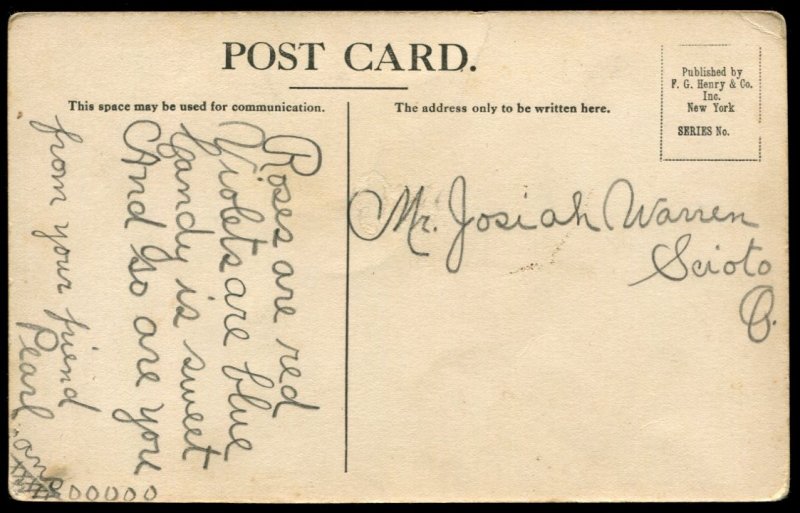 POST CARD.
This space may be used for communication.
The address only to be written here.
Published by
F. G. Henry & Co.
Inc.
New York
SERIES No.
Roses are red
Violets are blue
Candy is sweet
And so are you
from your friend
Pearl.
and
00000
Mr. Josiah Warren
Scioto
O.